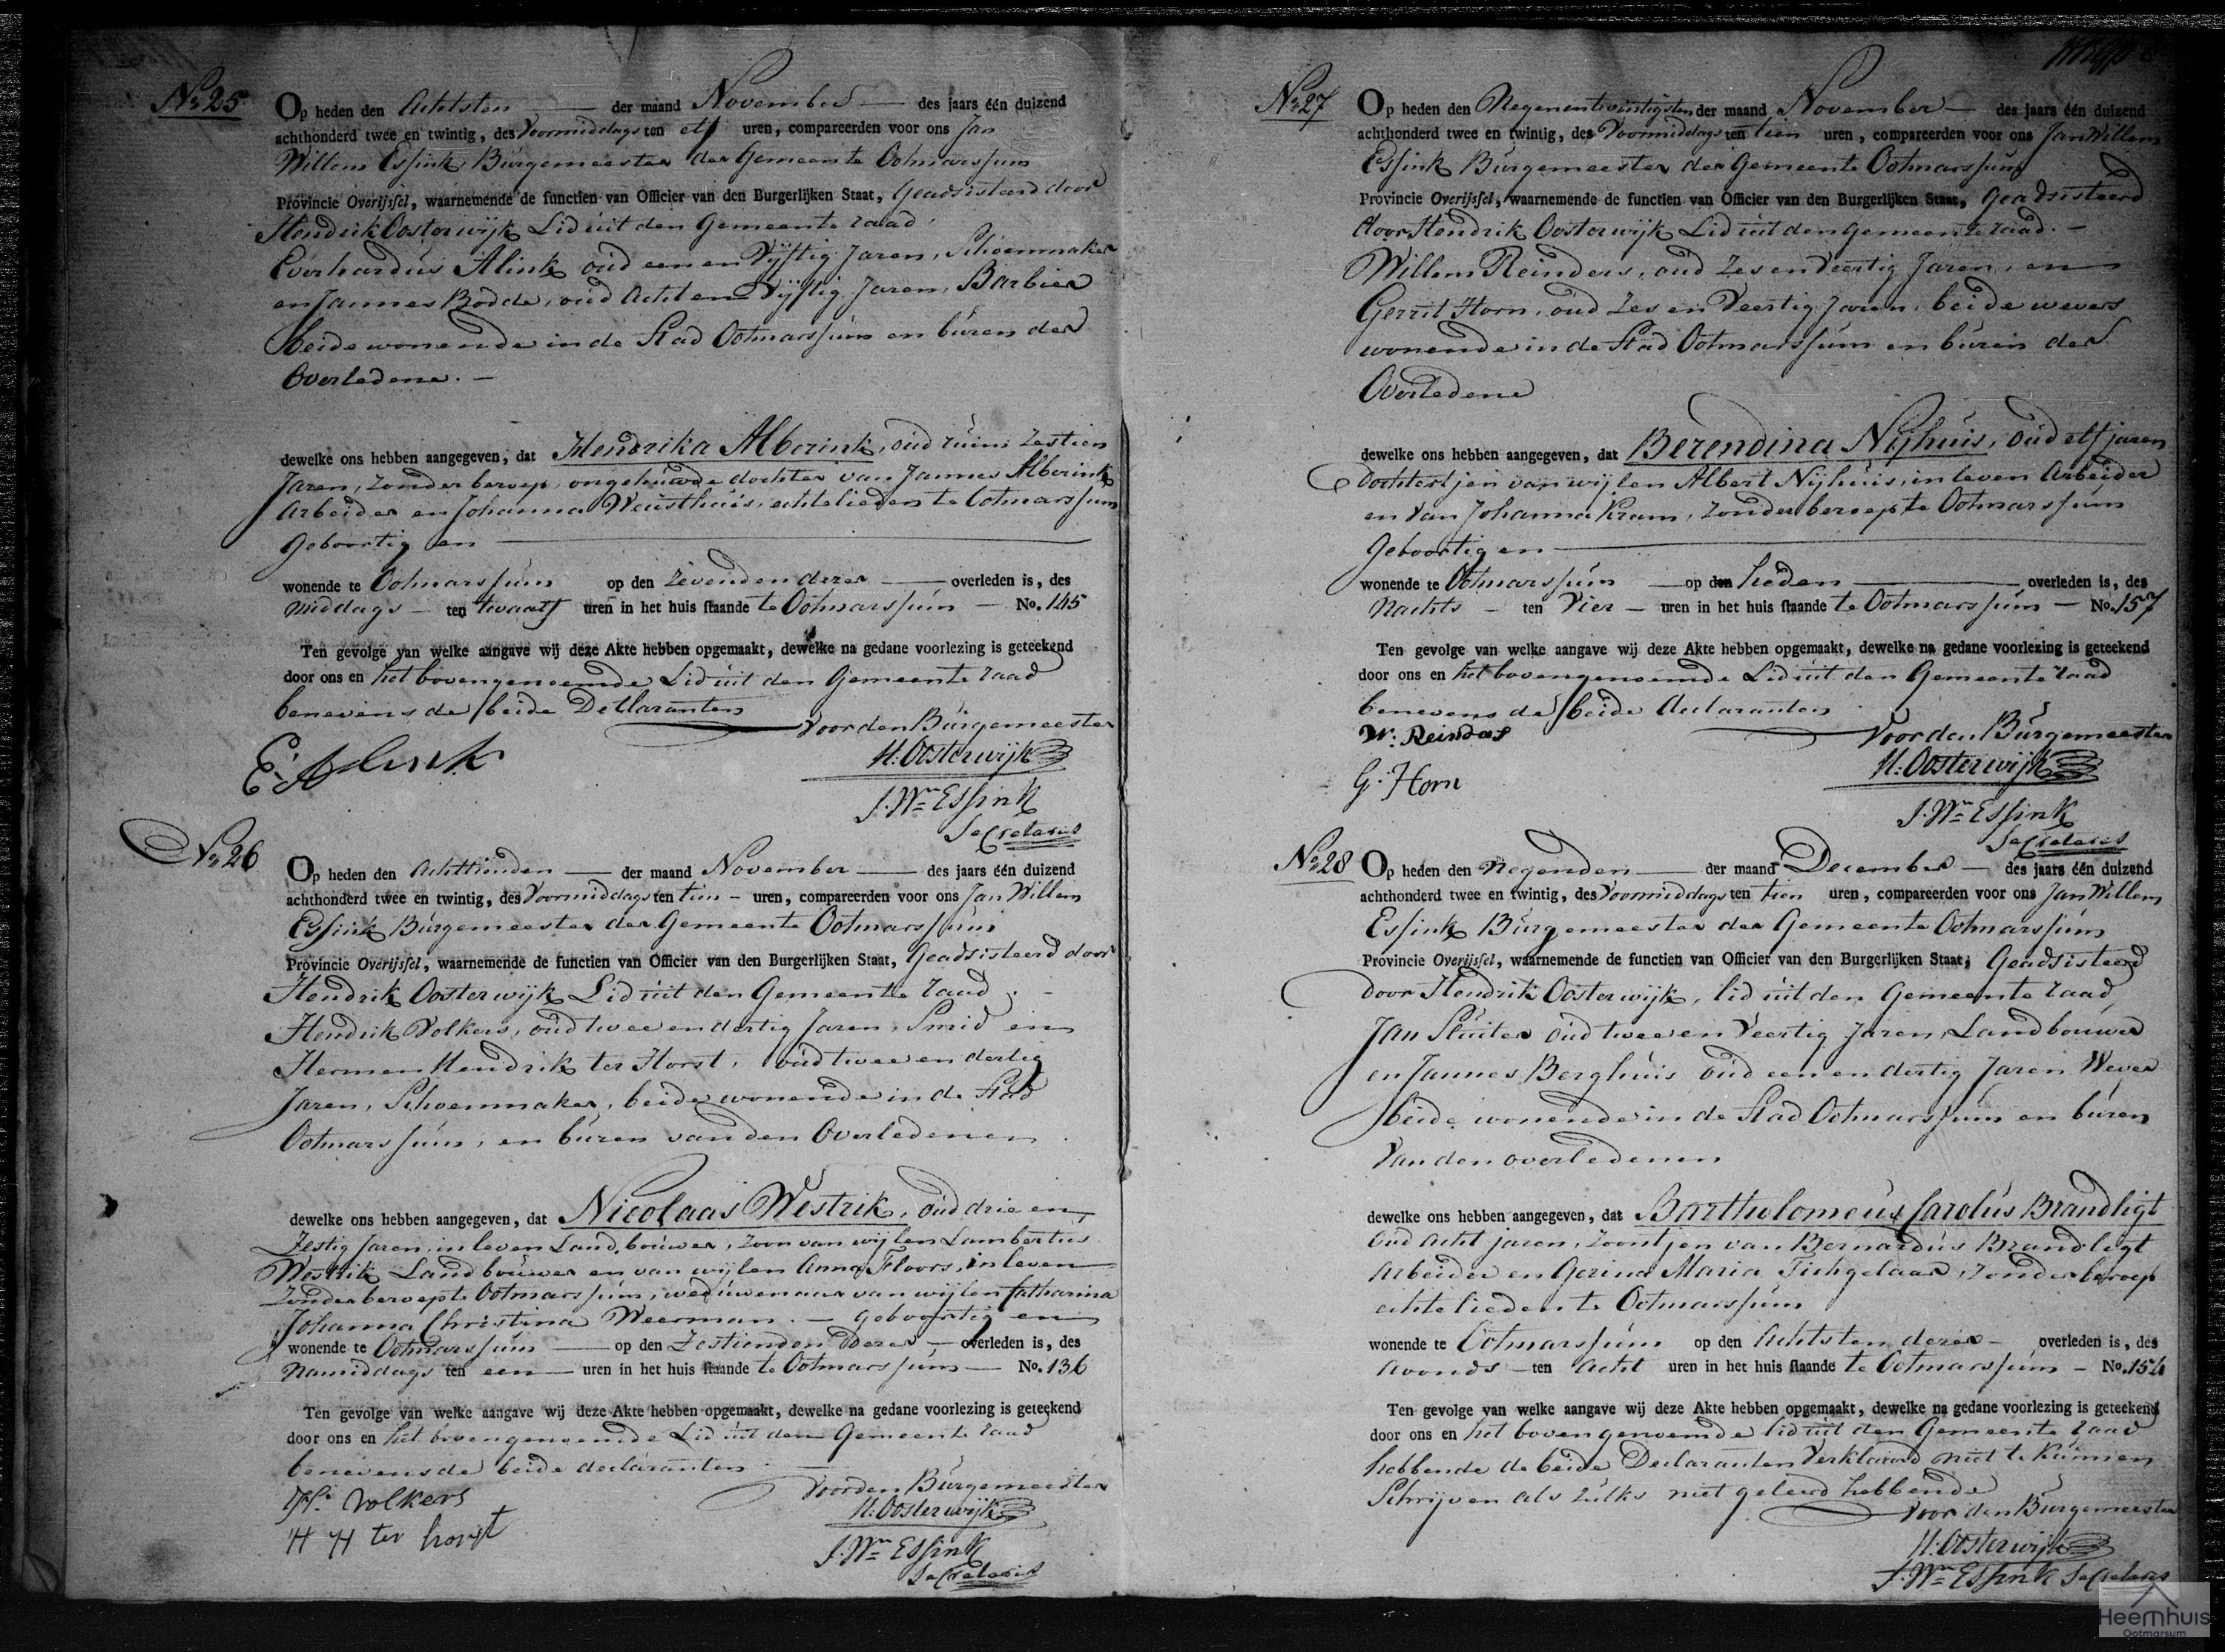 No 25
Op heden den Achtsten der maand November des jaars één duizend
achthonderd twee en twintig, des Voormiddags ten elf uren, compareerden voor ons Jan
Willem Essink Burgemeester der Gemeente Ootmarssum
Provincie Overijssel, waarnemende de functien van Officier van den Burgerlijken Staat, Geadsisteerd door
Hendrik Oosterwijk Lid uit den Gemeente raad.
Everhardus Alink oud een en Vijftig Jaren, Schoenmaker
en Jannes Bodde, oud Acht en Vijftig Jaren, Barbier
beide wonende in de Stad Ootmarssum en buren der
Overledene. -
dewelke ons hebben aangegeven, dat Hendrika Alberink, oud ruim Zestien
Jaren, Zonder beroep, ongehuwde dochter van Jannes Alberink
Arbeider en Johanna Weusthuis, echtelieden te Ootmarssum
Geboortig en
wonende te Ootmarssum op den Zevenden dezer overleden is, des
middags ten twaalf uren in het huis staande te Ootmarssum No. 145
Ten gevolge van welke aangave wij deze Akte hebben opgemaakt, dewelke na gedane voorlezing is geteekend
door ons en het bovengenoemde Lid uit den Gemeente raad
benevens de beide Declaranten
Voor den Burgemeester
E. Alink
H. Oosterwijk
J. Wm Essink
Secretaris
No 26
Op heden den Achttienden der maand November des jaars één duizend
achthonderd twee en twintig, des Voormiddags ten tien uren, compareerden voor ons Jan Willem
Essink Burgemeester der Gemeente Ootmarssum
Provincie Overijssel, waarnemende de functien van Officier van den Burgerlijken Staat, Geadsisteerd door
Hendrik Oosterwijk Lid uit den Gemeente raad. -
Hendrik Volkers, oud twee en dertig Jaren, Smid en
Hermen Hendrik ter Horst, oud twee en dertig
Jaren, Schoenmaker, beide wonende in de Stad
Ootmarssum, en buren van den Overledenen
dewelke ons hebben aangegeven, dat Nicolaas Westrik, oud drie en
Zestig Jaren, in leven Landbouwer, Zoon van wijlen Lambertus
Westrik Landbouwer en van wijlen Anna Floors, in leven
Zonder beroep te Ootmarssum, weduwenaar van wijlen Catharina
Johanna Christina Weerman. - Geboortig en
wonende te Ootmarssum op den Zestienden Dezer overleden is, des
Namiddags ten een uren in het huis staande te Ootmarssum No. 136
Ten gevolge van welke aangave wij deze Akte hebben opgemaakt, dewelke na gedane voorlezing is geteekend
door ons en het bovengenoemde Lid uit den Gemeente raad
benevens de beide declaranten
Voor den Burgemeester
Volkers
H. Oosterwijk
H H ter horst
J. Wm Essink
Secretaris
No 27
Op heden den Negenentwintigsten der maand November des jaars één duizend
achthonderd twee en twintig, des Voormiddags ten tien uren, compareerden voor ons Jan Willem
Essink Burgemeester der Gemeente Ootmarssum
Provincie Overijssel, waarnemende de functien van Officier van den Burgerlijken Staat, Geadsisteerd
door Hendrik Oosterwijk Lid uit den Gemeente raad. -
Willem Reinders, oud Zes en Veertig Jaren, en
Gerrit Horn, oud Zes en Veertig Jaren, beide wevers
wonende in de Stad Ootmarssum en buren der
Overledene
dewelke ons hebben aangegeven, dat Berendina Nijhuis, oud elf jaren
Dochtertjen van wijlen Albert Nijhuis, in leven Arbeider
en van Johanna Kram, Zonder beroep te Ootmarssum
Geboortig en
wonende te Ootmarssum op den heden overleden is, des
Nachts ten Vier uren in het huis staande te Ootmarssum No. 157
Ten gevolge van welke aangave wij deze Akte hebben opgemaakt, dewelke na gedane voorlezing is geteekend
door ons en het bovengenoemde Lid uit den Gemeente raad
benevens de beide declaranten
Voor den Burgemeester
W. Reinders
H. Oosterwijk
G. Horn
J. Wm Essink
Secretaris
No 28
Op heden den Negenden der maand December des jaars één duizend
achthonderd twee en twintig, des Voormiddags ten tien uren, compareerden voor ons Jan Willem
Essink Burgemeester der Gemeente Ootmarssum
Provincie Overijssel, waarnemende de functien van Officier van den Burgerlijken Staat, Geadsisteerd
door Hendrik Oosterwijk, lid uit den Gemeente raad
Jan Sluiter oud twee en Veertig Jaren, Landbouwer
en Jannes Berghuis oud een en dertig Jaren Wever
beide wonende in de Stad Ootmarssum en buren
Van den overledenen
dewelke ons hebben aangegeven, dat Bartholomeus Carolus Brandligt
oud acht jaren, Zoontjen van Bernardus Brandligt
Arbeider en Gerina Maria Tichgelaar, Zonder beroep
echtelieden te Ootmarssum
wonende te Ootmarssum op den Achtsten dezer overleden is, des
Avonds ten Acht uren in het huis staande te Ootmarssum No. 154
Ten gevolge van welke aangave wij deze Akte hebben opgemaakt, dewelke na gedane voorlezing is geteekend
door ons en het bovengenoemde lid uit den Gemeente raad
hebbende de beide Declaranten Verklaard niet te kunnen
Schrijven als zulks niet geleerd hebbende
Voor den Burgemeester
H. Oosterwijk
J. Wm Essink Secretaris
Heemhuis
Ootmarsum